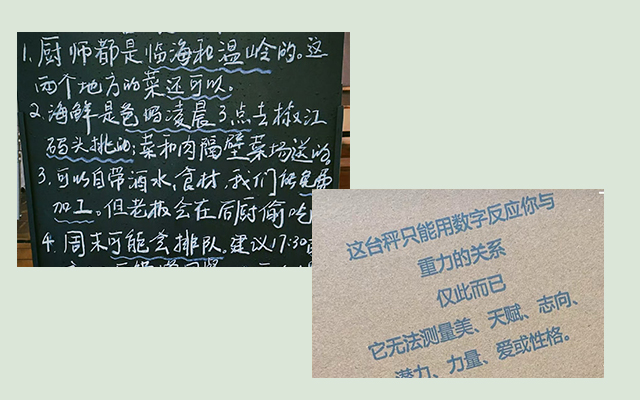 1.厨师都是临海和温岭的。这
两个地方的菜还可以。
2.海鲜是爸妈凌晨3点去椒江
码头挑的;菜和肉隔壁菜场送的。
3.可以自带酒水,食材,我们
加工。但老板会在后厨偷吃
4.周末可能会排队。建议17:30
这台秤只能用数字反应你与
重力的关系
仅此而已
它无法测量美、天赋、志向、
潜力、力量、爱或性格。